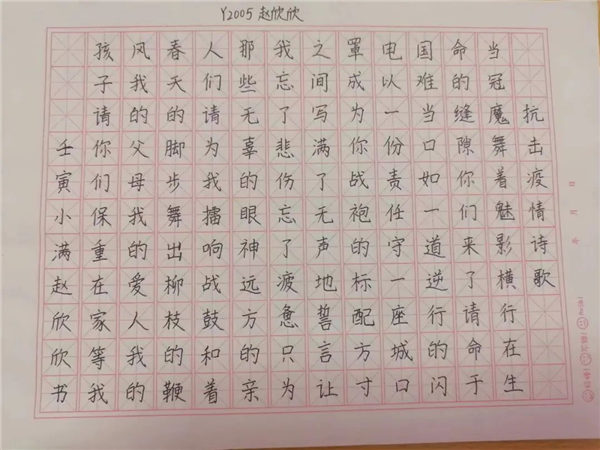 Y2005 赵欣欣
年 月 日
抗击疫情诗歌
当冠魔舞着魅影横行在生
命的缝隙你们来了请命于
国难当口如一道逆行的闪
电以一份责任守一座城口
罩成为你战袍的标配方寸
之间写满了无声地誓言让
我忘了悲伤忘了疲惫只为
那些无辜的眼神远方的亲
人们请为我擂响战鼓和着
春天的脚步舞出柳枝的鞭
风我的父母我的爱人我的
孩子请你们保重在家等我
壬寅小满赵欣欣书